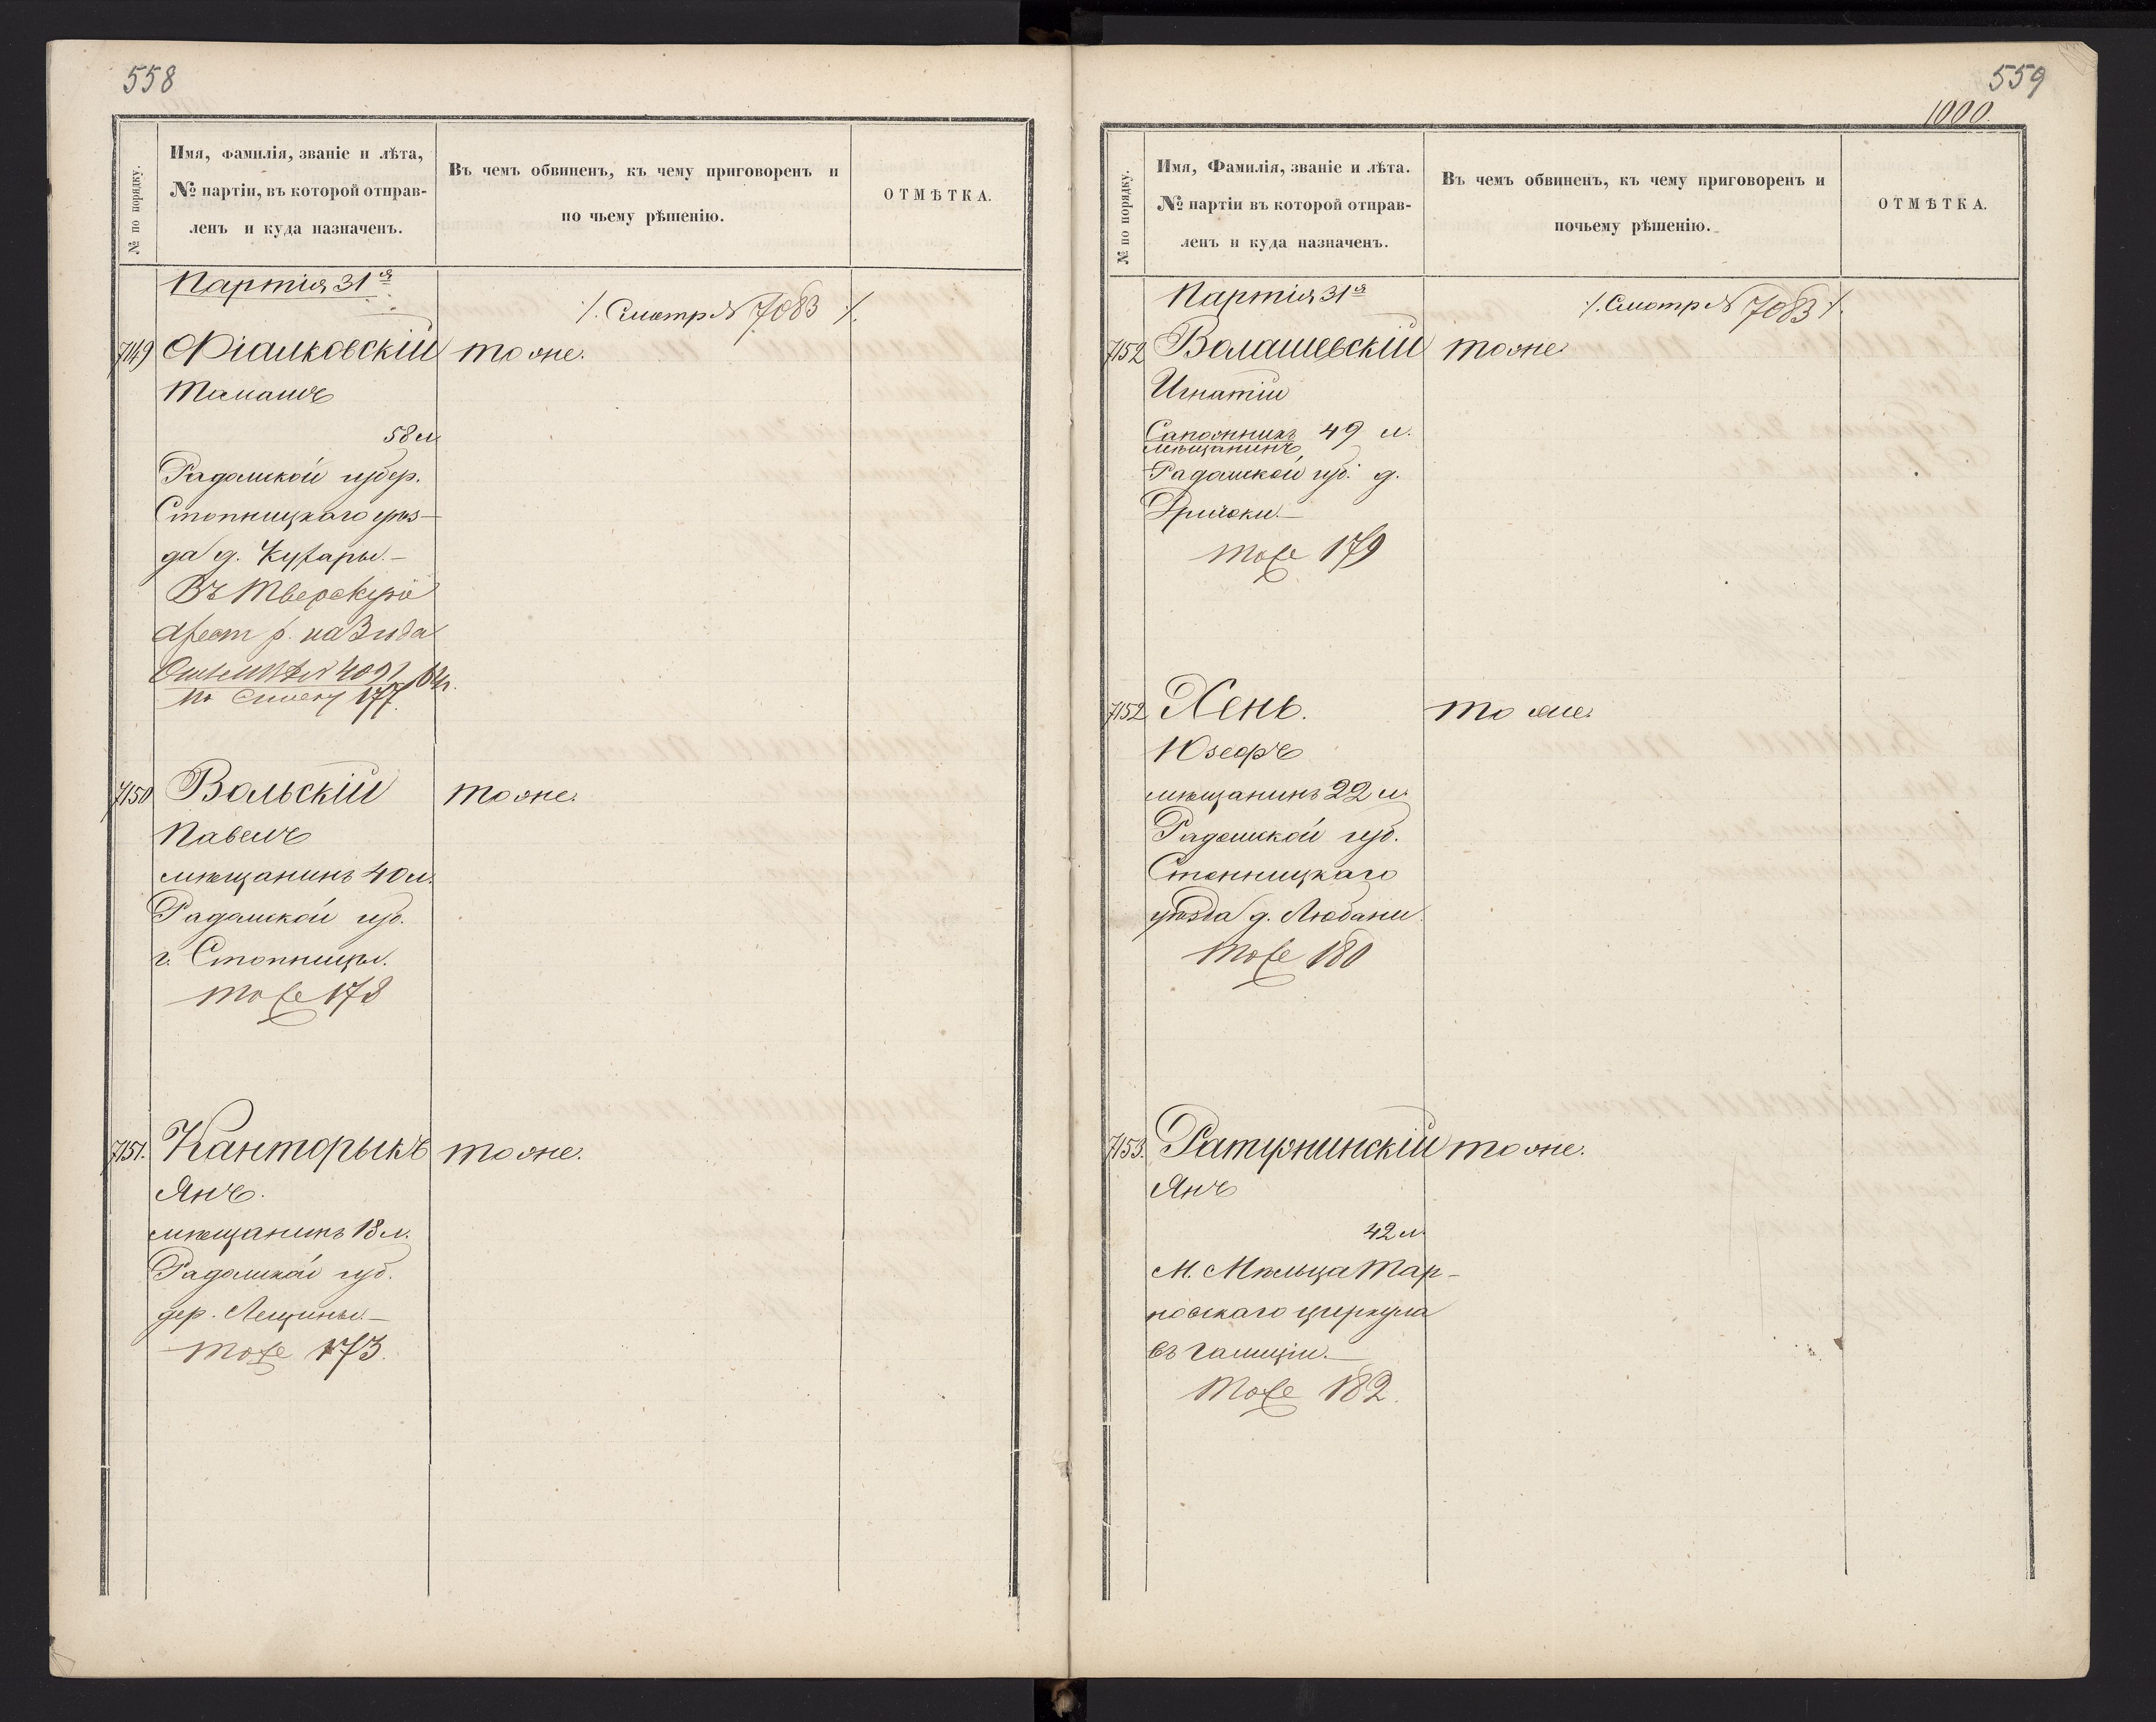 558
№ по порядку.
Имя, фамилія, званіе и лѣта,
№ партіи, въ которой отправ-
ленъ и куда назначенъ.
Въ чемъ обвиненъ, къ чему приговоренъ и
по чьему рѣшенію.
ОТМѢТКА.
Партія 31я
/. Смотр № 7083 /.
7149 Фіалковскій тоже.
Томашъ
58 л
Радомской губер.
Стопницкаго уѣз-
да д.
Въ Тверскую
Арест р. на 3 года
№ 4091
по списку 177.
7150 Вольскій тоже.
Павелъ
мѣщанинъ 40 л.
Радомской губ.
г. Стопницы.
тоже 178
7151. Канторыкъ тоже.
Янъ.
мѣщанинъ 18 л.
Радомской губ.
дер. Лещины.—
тоже 173.
559
1000.
№ по порядку.
Имя, Фамилія, званіе и лѣта.
№ партіи въ которой отправ-
ленъ и куда назначенъ.
Въ чемъ обвиненъ, къ чему приговоренъ и
почьему рѣшенію.
ОТМѢТКА.
Партія 31я
/. Смотр № 7083 /.
7152 Волашевскій тоже
Игнатій
Сапожникъ 49 л.
мѣщанинъ
Радомской губ. д.
тоже 179
7152 Хень. тоже.
Юзефъ
мѣщанинъ 22 л.
Радомской губ.
Стопницкаго
уѣзда д. Любани
тоже 180
7153. Ратужинскій тоже.
Янъ
42 л
М. Мѣльца Тар-
новскаго циркула
въ Галиціи.—
тоже 182.